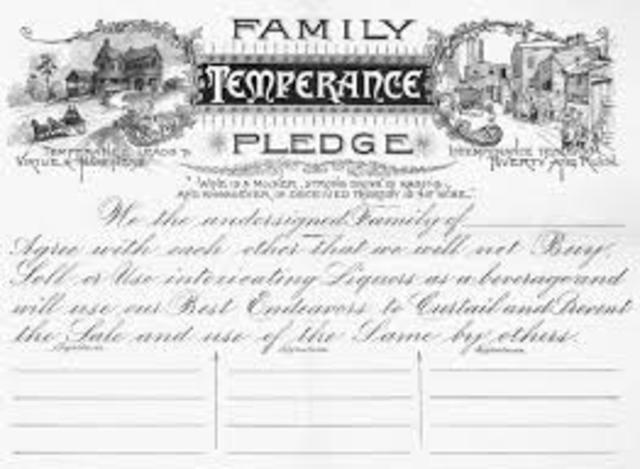 FAMILY
TEMPERANCE
PLEDGE
TEMPERANCE LEADS TO
VIRTUE & HAPPINESS
INTEMPERANCE LEADS TO
POVERTY AND RUIN.
"WINE IS A MOCKER, STRONG DRINK IS RAGING,
AND WHOSOEVER IS DECEIVED THEREBY IS NOT WISE."
We the undersigned Family of
Agree with each other that we will not Buy,
Sell or Use intoxicating Liquors as a beverage and
will use our Best Endeavors to Curtail and Prevent
the Sale and use of the Same by others.
Signatures Signatures Signatures